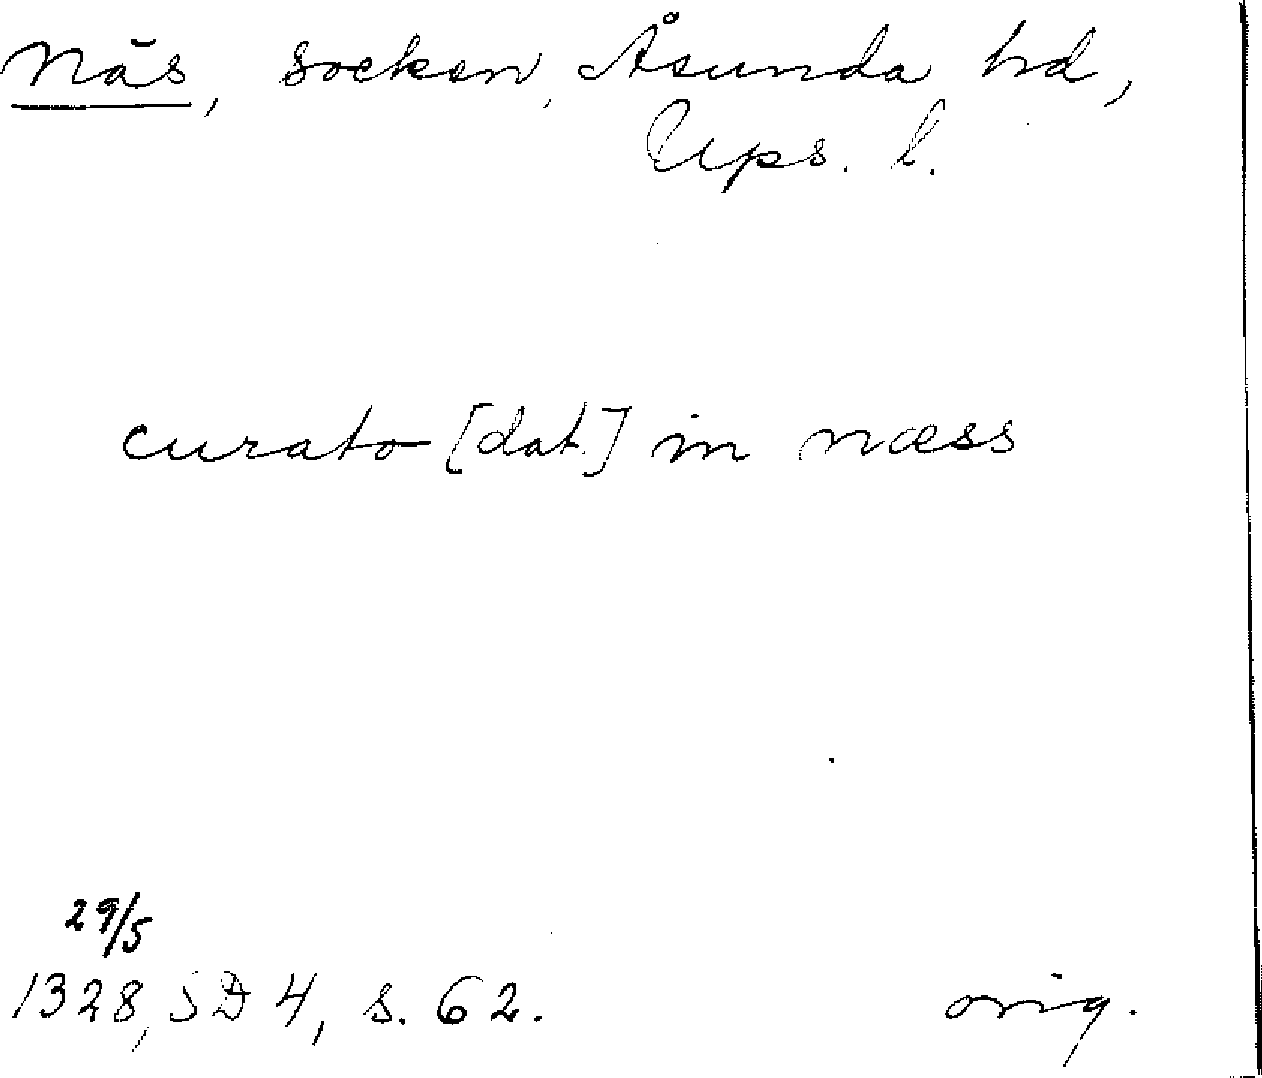 Näs, socken, Åsunda hd,
Ups. l.
curato [dat.] in næss
29/5
1328, SD 4, s. 62. orig.